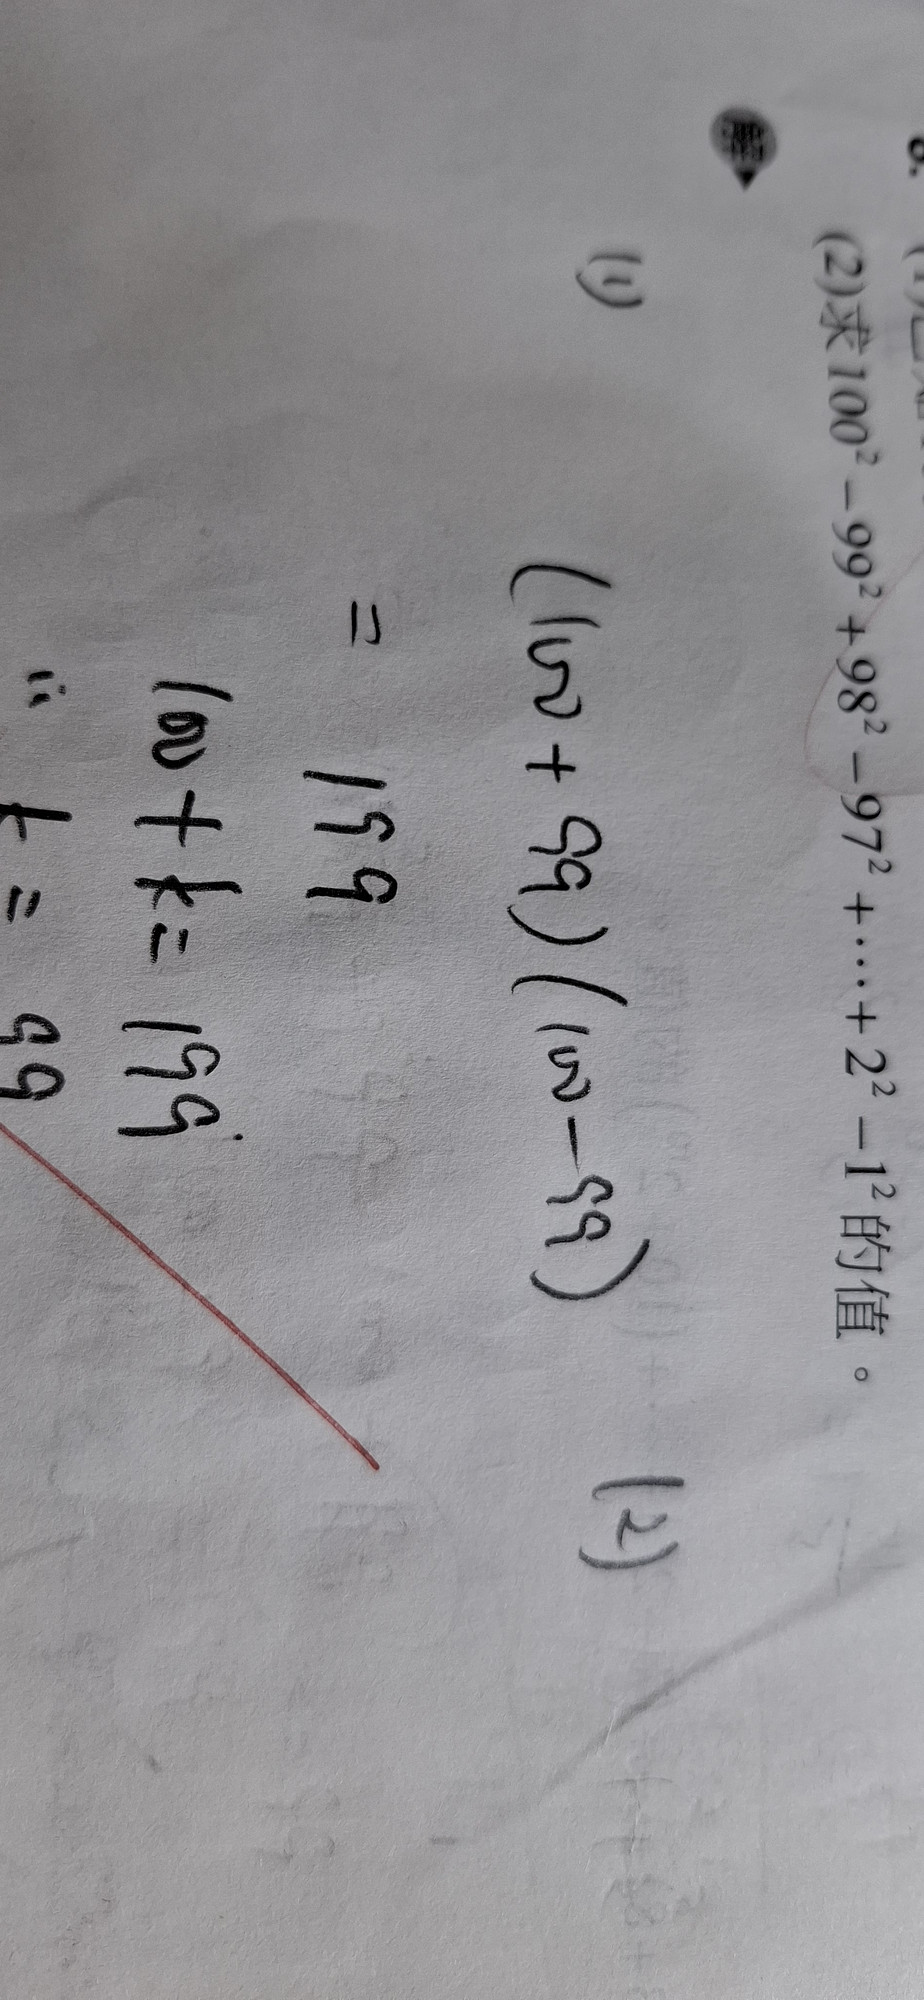 (2)求100²－99²＋98²－97²＋…＋2²－1²的值。
解
(1)
(100+99)(100-99)
= 199
100+k=199
∴ k = 99
(2)